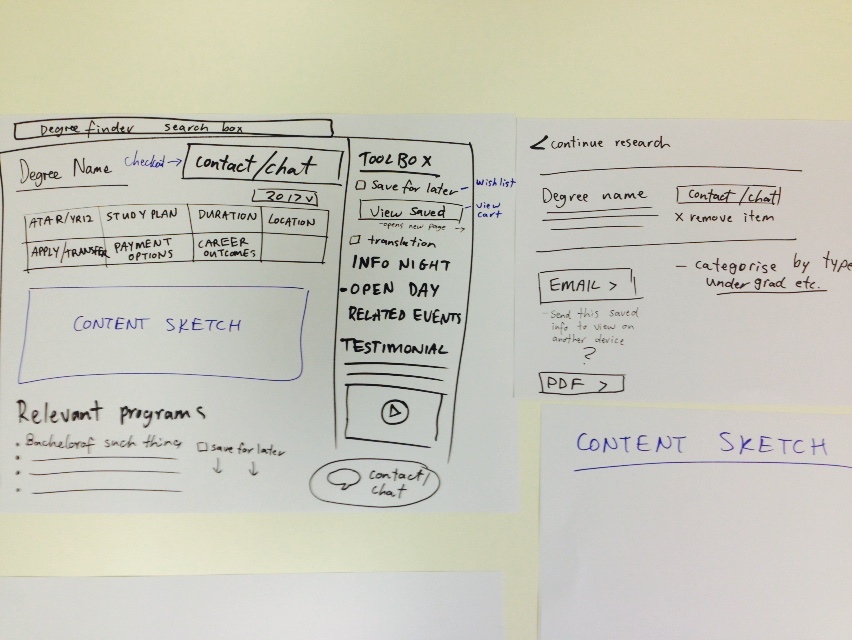 Degree finder search box
Degree Name
checked →
contact/chat
2017 v
ATAR/YR12
STUDY PLAN
DURATION
LOCATION
APPLY/TRANSFER
PAYMENT
OPTIONS
CAREER
OUTCOMES
CONTENT SKETCH
Relevant programs
• Bachelor of such thing
save for later
TOOLBOX
Save for later
wishlist
View Saved
view
cart
-opens new page →
translation
INFO NIGHT
- OPEN DAY
RELATED EVENTS
TESTIMONIAL
contact/
chat
< continue research
Degree name
contact/chat
x remove item
- categorise by type
under grad etc.
EMAIL >
- Send this saved
info to view on
another device
?
PDF >
CONTENT SKETCH